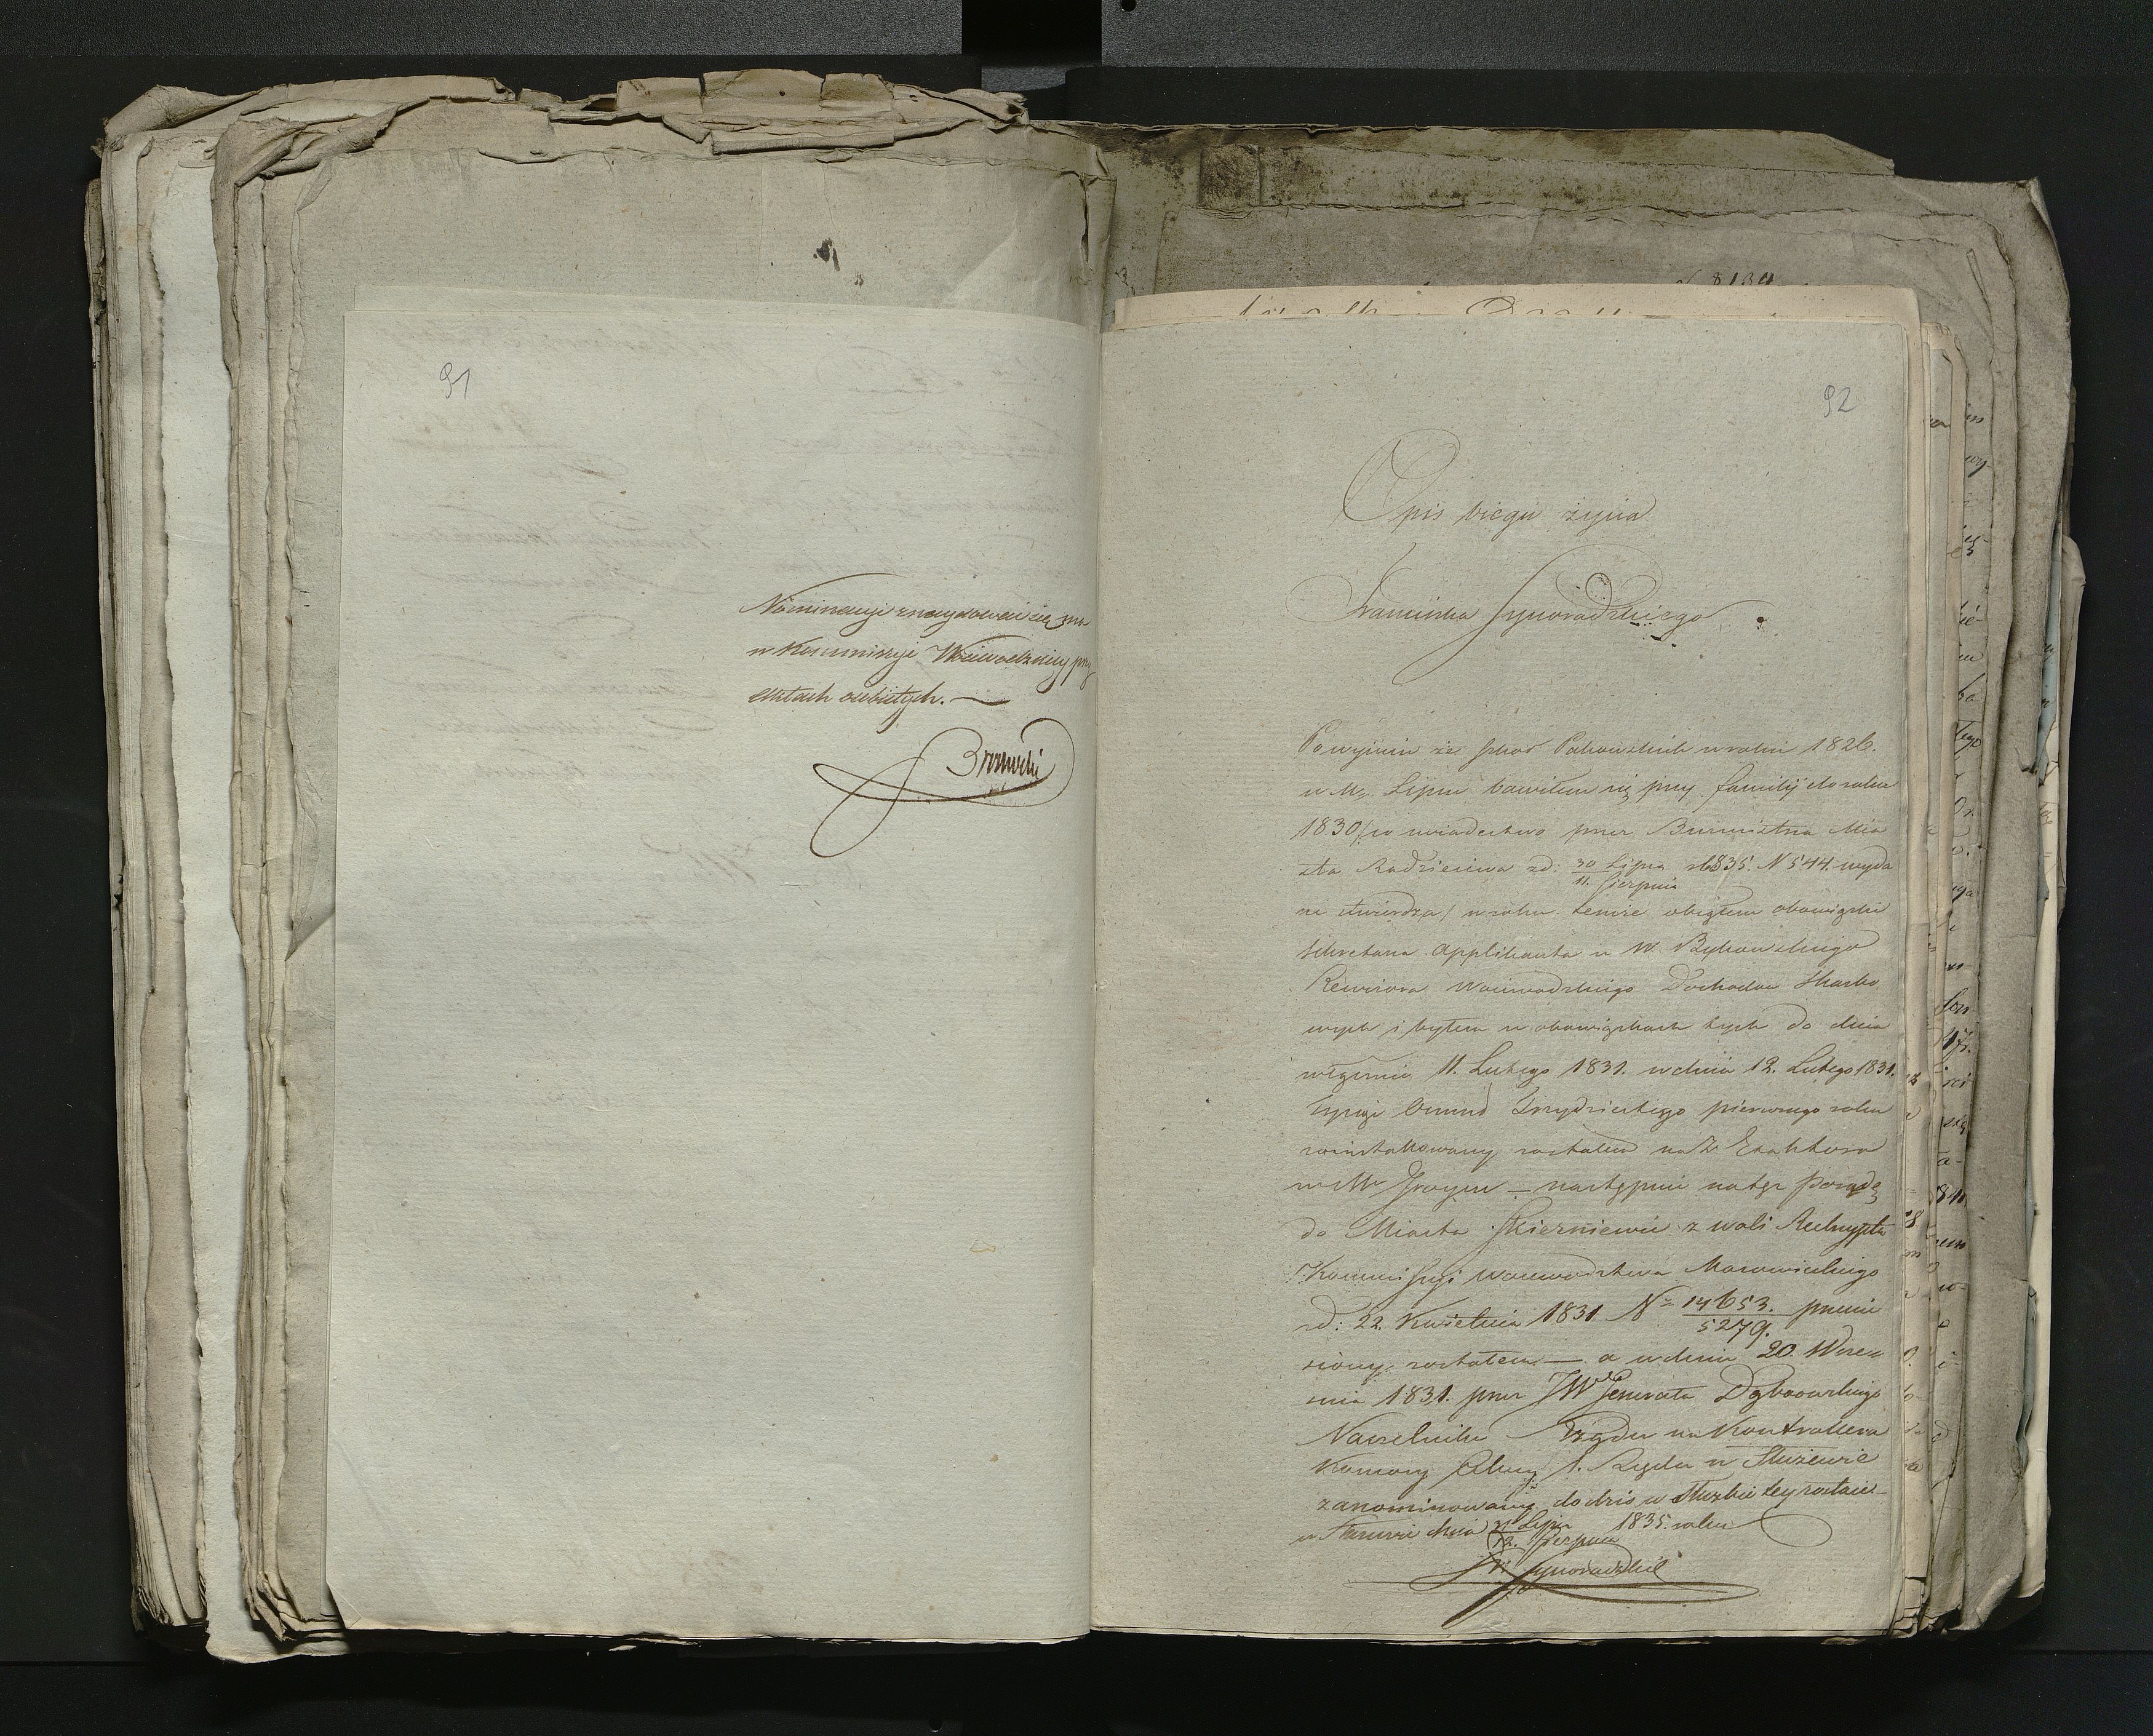 91
Nominacyi znaydować się ma
w Kommissyi Woiewodzkiey przy
aktach osobistych. —
92
Opis biegu życia
Franciszka Synoradzkiego
Po wyjściu ze szkoł w roku 1826.
w M. Lipcu bawiłem się przy familij do roku
1830 /:co świadectwo przez Burmistrza Mia
sta Radziejewa zd: 30 Lipca / 11. Sierpnia 1835. N 544. wyda
ne stwierdza/ w roku temże obiąłem obowiązki
Sekretarza Applikanta u W. Bykowskiego
Rewizora Woiewodzkiego Dochodów Skarbo
wych i byłem w obowiązkach tych do dnia
włącznie 11. Lutego 1831. w dniu 12. Lutego 1831.
Tysiąc Ośmset Trzydziestego pierwszego roku
zainstallowany zostałem na Z Exaktora
w M. — następnie na tęż posadę
do Miasta Skierniewic z woli Reskryptu
Kommissyi Woiewodztwa Mazowieckiego
zd: 22. Kwietnia 1831. No 14653. / 5279. przenie
siony zostałem — a w dniu 20. Wrze=
śnia 1831. przez JW Generała
Naczelnika Rządu na Kontrollera
Komory Celney I. Rzędu w Służewie
zanominowany do dziś w służbie tey zostaie —
w Służewie dnia 31 Lipca / 12. Sierpnia 1835. roku
Fr: Synoradzki